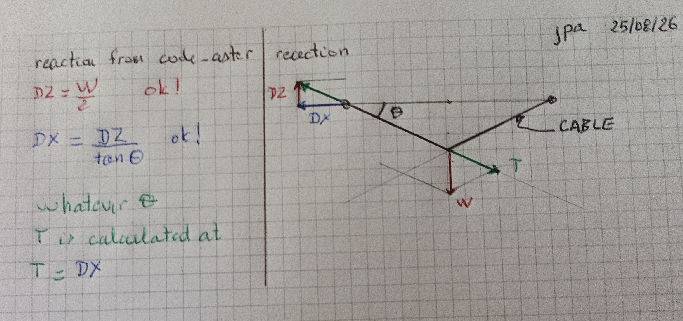 jpa 25/08/26
reaction from code-aster
reaction
DZ = W/2 ok!
DX = DZ/tanθ ok!
whatever θ
T is calculated at
T = DX
DZ
DX
θ
CABLE
T
W